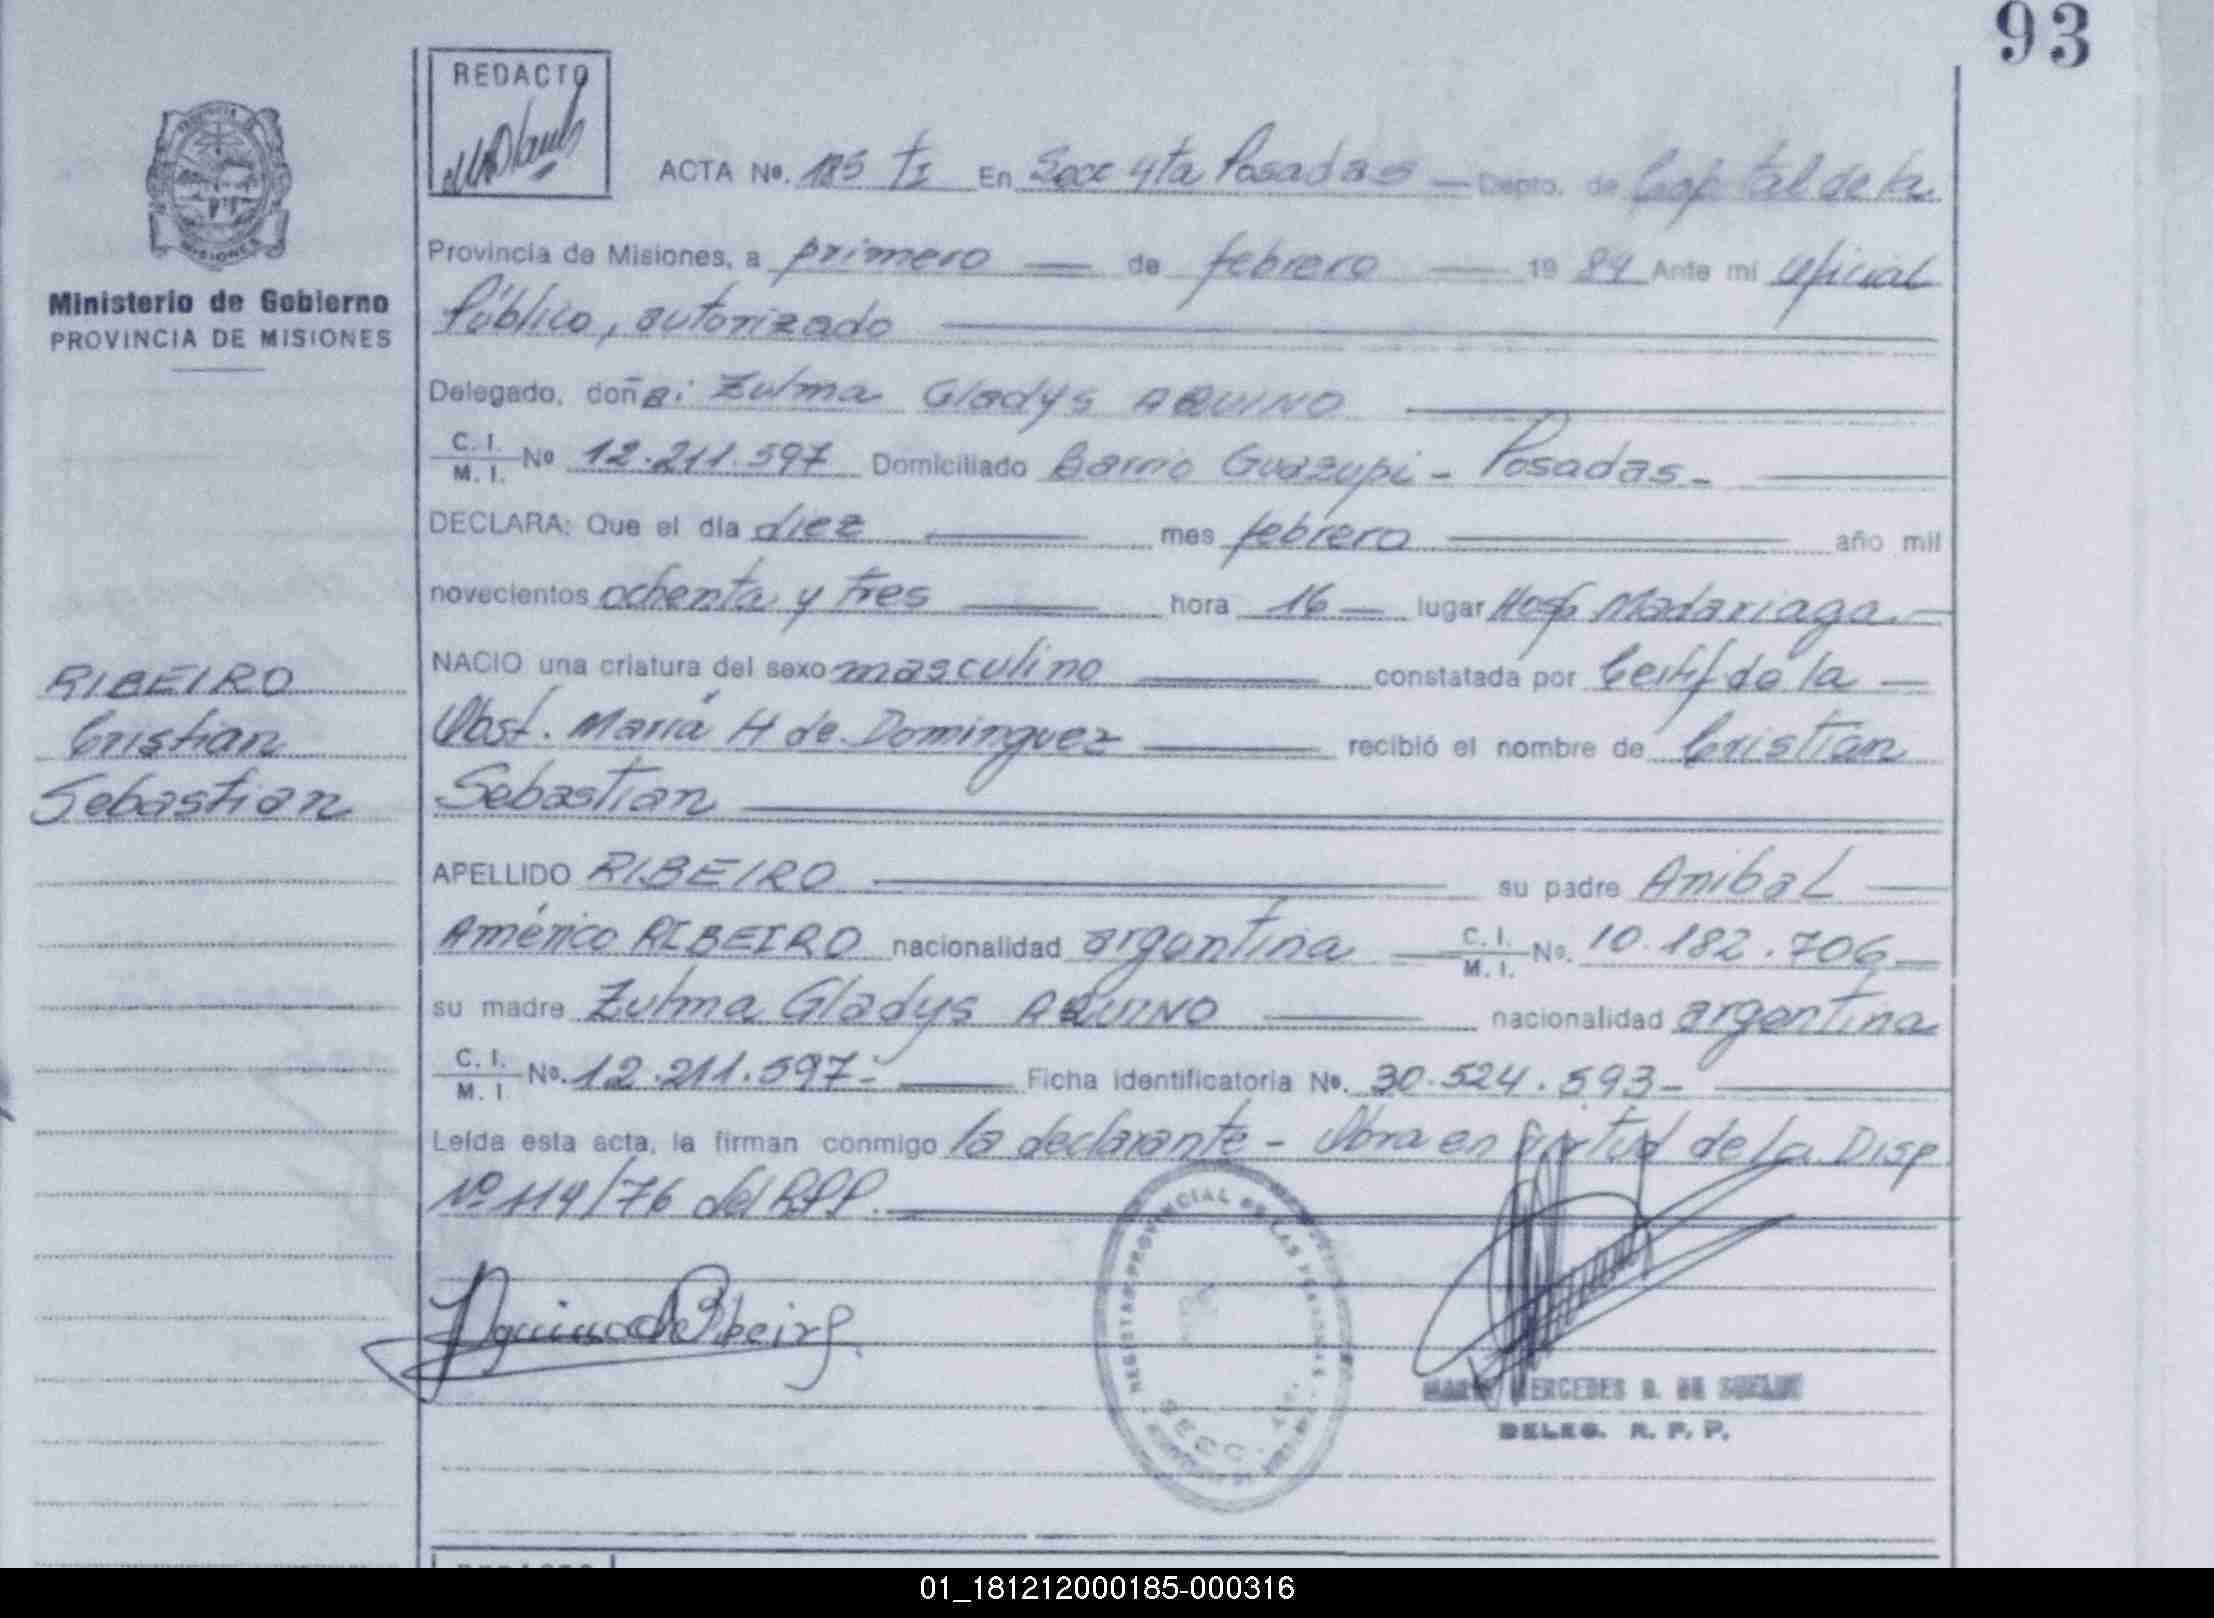 93
REDACTO
ACTA Nº. 185 TI En Secc 4ta Posadas — Depto. de Capital de la
Provincia de Misiones, a primero — de febrero — 19 84 Ante mí oficial
Público, autorizado
Ministerio de Gobierno
PROVINCIA DE MISIONES
Delegado, doña: Zulma Gladys AQUINO
C. I. / M. I. Nº 12.211.597 Domiciliado Barrio Guazupi - Posadas -
DECLARA: Que el día diez — mes febrero — año mil
novecientos ochenta y tres — hora 16 — lugar Hosp Madariaga —
NACIO una criatura del sexo masculino — constatada por Certif de la —
Obst. María H de Dominguez — recibió el nombre de Cristian
Sebastian
RIBEIRO
Cristian
Sebastian
APELLIDO RIBEIRO — su padre Anibal —
Américo RIBEIRO nacionalidad argentina — C. I. / M. I. No. 10.182.706 —
su madre Zulma Gladys AQUINO — nacionalidad argentina
C. I. / M. I. Nº. 12.211.597- — Ficha identificatoria Nº. 30.524.593-
Leída esta acta, la firman conmigo la declarante - Obra en virtud de la Disp
Nº 114/76 del RPP.
REGISTRO PROVINCIAL DE LAS PERSONAS
SECC.
MERCEDES
DELEG. R. P. P.
01_181212000185-000316